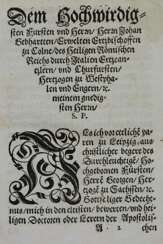 Dem Hochwirdig-
sten Fürsten vnd Herrn/ Herrn Johan
Gebharten/ Erwelten Ertzbischoffen
zu Cölne/ des Heiligen Römischen
Reichs durch Italien Ertzcan-
tzlern/ vnd Churfürsten/
Hertzogen zu Westpha-
len vnd Engern/ ꝛc.
meinem gnedig-
sten Herrn
S. P.
ALs ich vor etliche ja-
ren zu Leipzig, aus
schrifftlicher beger des
Durchleuchtige/ Hoch-
gebornen Fürsten/
Herrn Georgen/ Her-
tzog zu Sachssen/ ꝛc.
Gottseliger Gedecht-
nus/ mich in den eltesten/ bewerten/ vnd hei-
ligen Doctorn oder Lerern der Apostoli-
A 2 schen